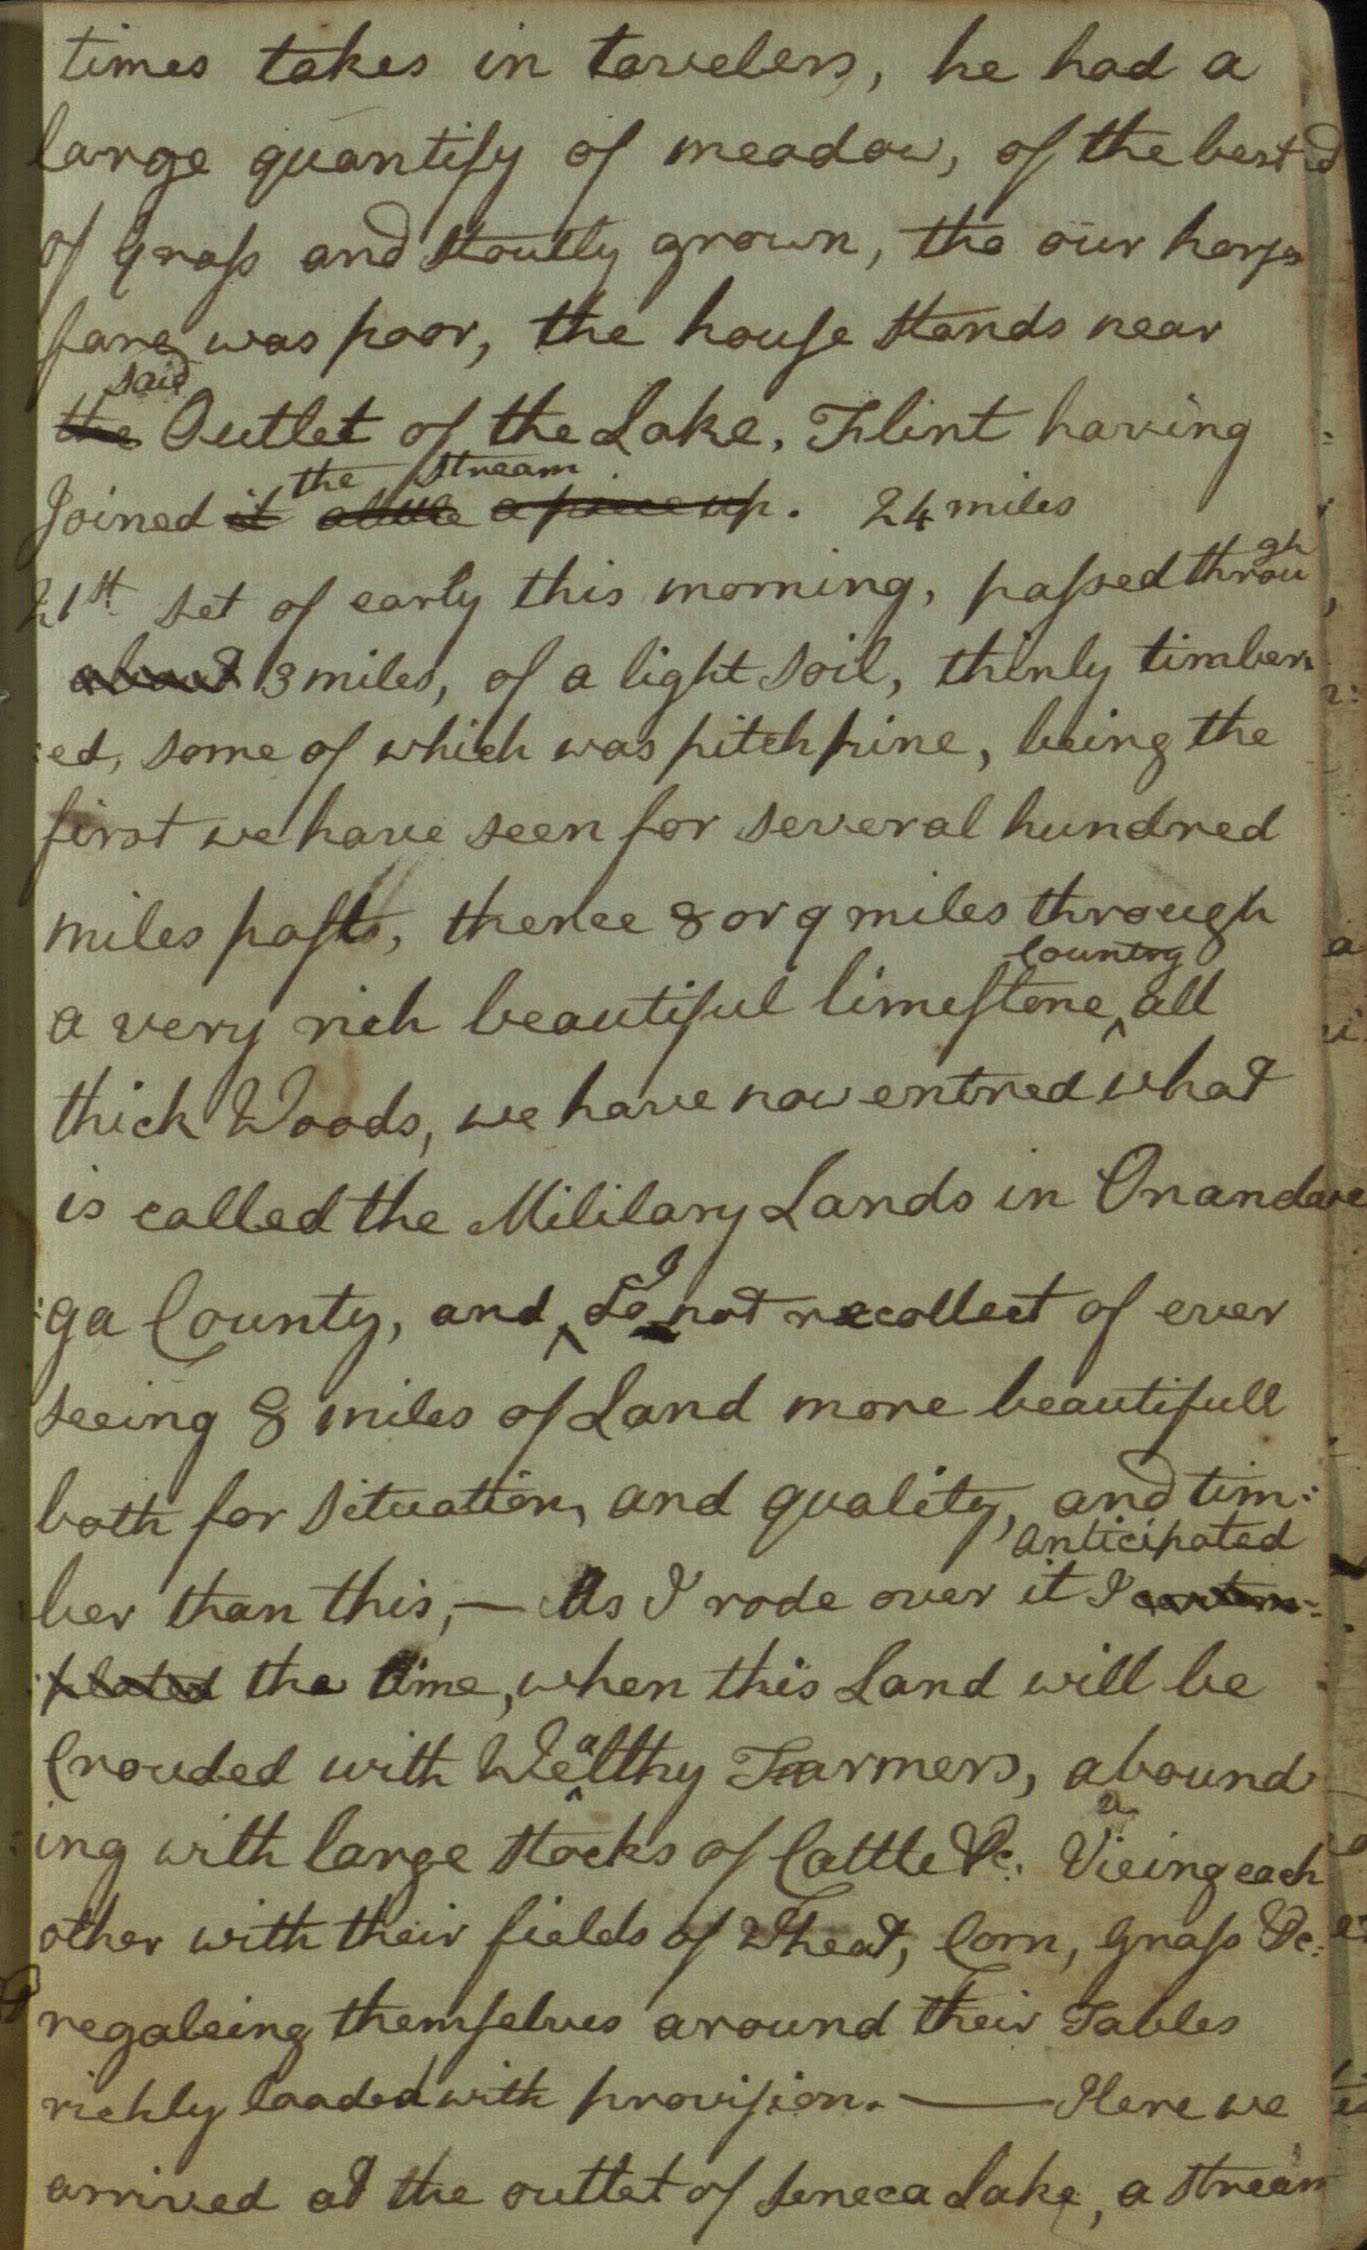 times takes in tavelers, he had a
large quantity of meadow, of the best
of Grass and Stoutly grown, tho our horses
fare was poor, the house stands near
said
the Outlet of the Lake, Flint having
the stream
Joined it above a piece up. 24 miles
gh
21st set of early this morning, passed throu
about 3 miles, of a light soil, thinly timber
:ed, some of which was pitch pine, being the
first we have seen for several hundred
miles past, thence 8 or 9 miles through
Country
a very rich beautiful limestone ^ all
thick Woods, we have now entred what
is called the Mililary Lands in Onanda
I
:ga County, and ^ do not recollect of ever
seeing 8 miles of Land more beautifull
both for situation, and quality, and tim:
anticipated
ber than this, — As I rode over it I contem:
:plated the time, when this Land will be
a
Crouded with We^lthy Farmers, abound
ing with large stocks of Cattle &c. Vieing each
other with their fields of Wheat, Corn, Grass &c:
regaleing themselves around their Tables
richly loaded with provision. — Here we
arrived at the outlet of Seneca Lake, a stream